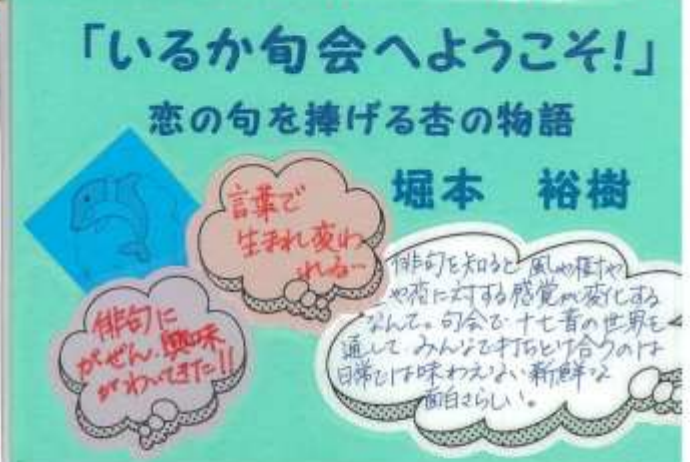 「いるか句会へようこそ!」
恋の句を捧げる杏の物語
堀本 裕樹
言葉で
生まれ変わ
れる…
俳句に
がぜん、興味
がわいてきた!!
俳句を知ると風や樹や
や宿に対する感覚が変化する
なんて。句会で十七音の世界を
通して みんなで打ちとけ合うのは
日常では味わえない新鮮な
面白さらしい。